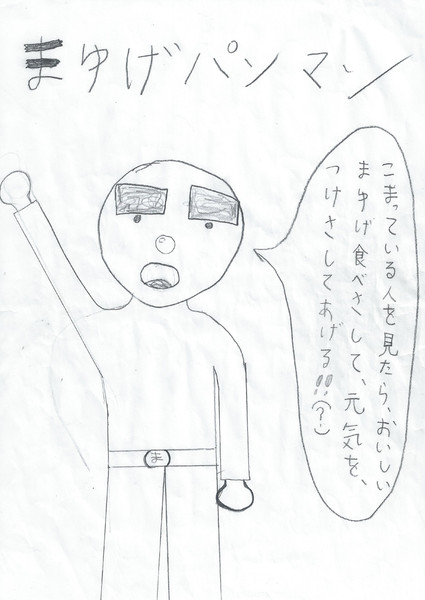 まゆげパンマン
こまっている人を見たら、おいしい
まゆげ食べさして、元気を、
つけさしてあげる!!(?)
ま